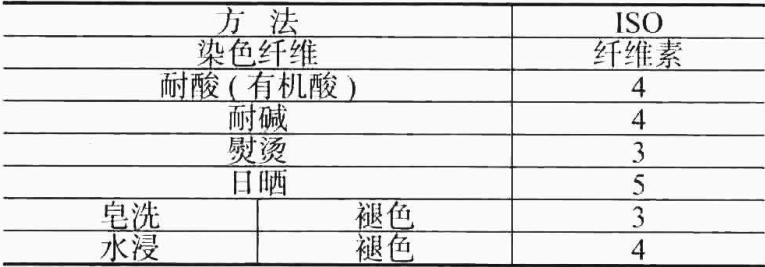 方 法 ISO
染色纤维 纤维素
耐酸(有机酸) 4
耐碱 4
熨烫 3
日晒 5
皂洗 褪色 3
水浸 褪色 4